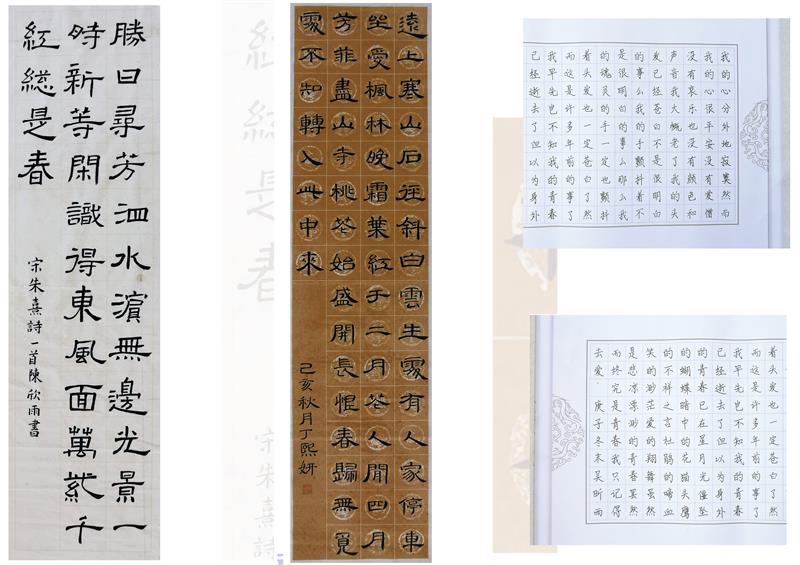 勝日尋芳泗水濱無邊光景一
時新等閑識得東風面萬紫千
紅緫是春
宋朱熹詩一首陳欣雨書
遠上寒山石徑斜白雲生處有人家停車
坐愛楓林晚霜葉紅于二月花人間四月
芳菲盡山寺桃花始盛開長恨春歸無覓
處不知轉入此中來
己亥秋月丁熙妍
我的心分外地寂寞然而
我的心很平安没有爱憎
没有哀乐也没有颜色和
声音我大概老了我的头
发已经苍白不是很明白
的事么我的手颤抖着不
是很明白的事么那么我
的魂灵的手一定也颤抖
着头发也一定苍白了然
而这是许多年前的事了
我早先岂不知我的青春
已经逝去了但以为身外
着头发也一定苍白了然
而这是许多年前的事了
我早先岂不知我的青春
已经逝去了但以为身外
的青春已在星月光僵坠
的蝴蝶暗中的花猫头鹰
的不祥之言杜鹃的啼血
笑的渺茫爱的翔舞虽然
是悲凉漂渺的青春罢然
而终究是青春我只记得
去爱 庚子冬末吴昕雨